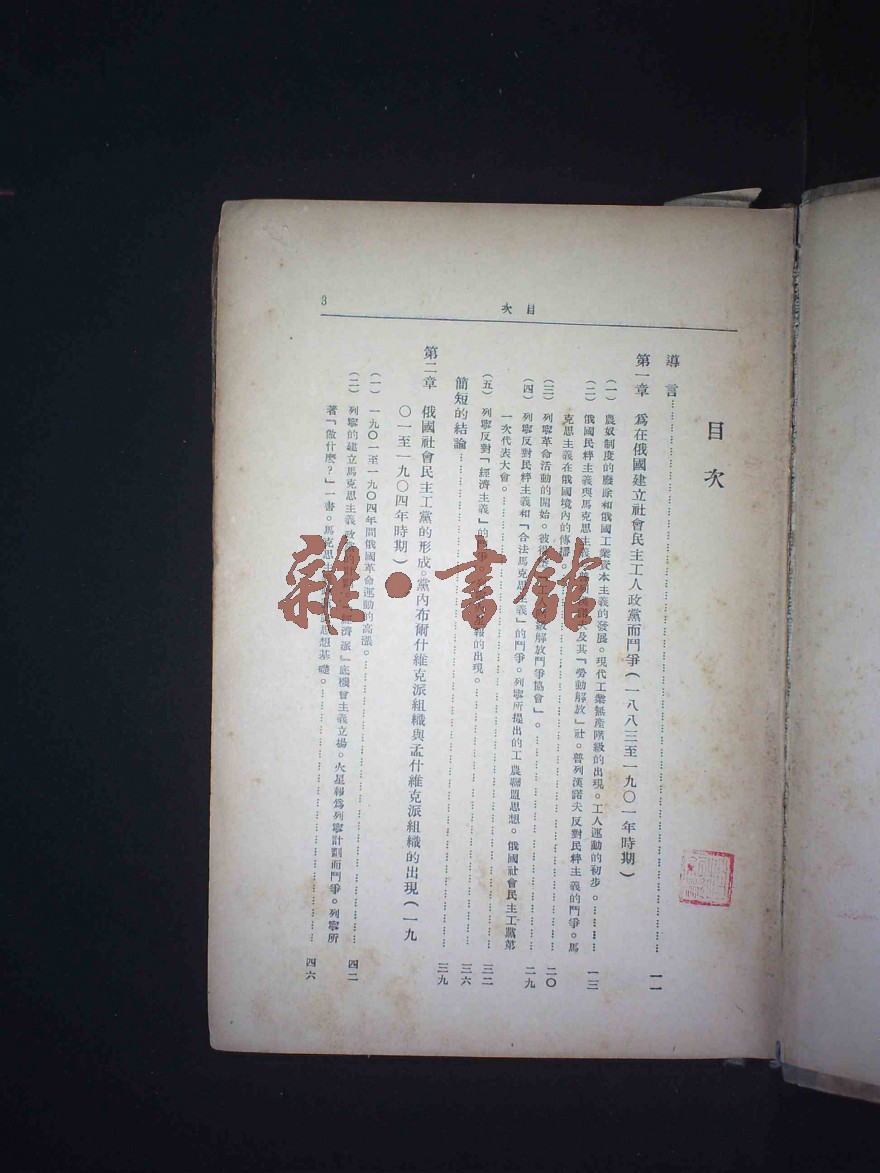 3
目次
目次
導言……一一
第一章 爲在俄國建立社會民主工人政黨而鬥爭（一八八三至一九〇一年時期）
（一） 農奴制度的廢除和俄國工業資本主義的發展。現代工業無產階級的出現。工人運動的初步。……一三
（二） 俄國民粹主義與馬克思主義 及其「勞動解放」社。普列漢諾夫反對民粹主義的鬥爭。馬
克思主義在俄國境內的傳播。……二〇
（三） 列寧革命活動的開始。彼得 解放鬥爭協會」。……二九
（四） 列寧反對民粹主義和「合法馬克思主義」的鬥爭。列寧所提出的工農聯盟思想。俄國社會民主工黨第
一次代表大會。……三二
（五） 列寧反對「經濟主義」的 報的出現。……三六
簡短的結論……三九
第二章 俄國社會民主工黨的形成。黨內布爾什維克派組織與孟什維克派組織的出現（一九
〇一至一九〇四年時期）
（一） 一九〇一至一九〇四年間俄國革命運動的高漲。……四二
（二） 列寧的建立馬克思主義政黨 經濟派」底機會主義立場。火星報爲列寧計劃而鬥爭。列寧所
著「做什麽？」一書。馬克思主 思想基礎。……四六
雜·書館